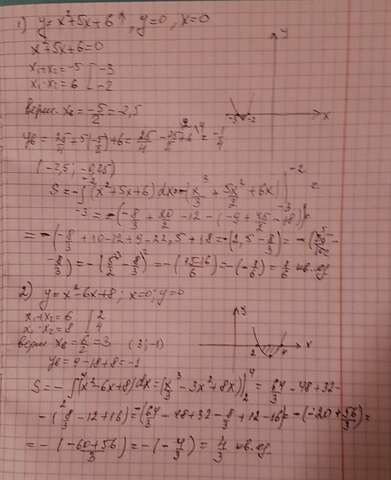 1) y = x²+5x+6 ↑, y=0, x=0
x²+5x+6=0
x₁+x₂=-5 | -3
x₁·x₂=6 | -2
y
x
-3 -2
верш. x₀ = -5/2 = -2,5
y₀ = 25/4 + 5(-5/2)+6 = 25/4 - 25/2 + 6 = -1/4
(-2,5; -0,25)
S = -∫₋₃⁻² (x²+5x+6)dx = -(x³/3 + 5x²/2 + 6x)|₋₃⁻² =
= -(-8/3 + 20/2 - 12 - (-9 + 45/2 - 18)) =
= -(-8/3 + 10 - 12 + 9 - 22,5 + 18 = -(2,5 - 8/3) = -(
-8/3) = -(5/2 - 8/3) = -(15-16/6) = -(-1/6) = 1/6 кв.ед
2) y = x²-6x+8; x=0; y=0
x₁+x₂=6 | 2
x₁·x₂=8 | 4
y
x
2 4
верш x₀ = 6/2 = 3 (3; -1)
y₀ = 9-18+8 = -1
S = -∫₂⁴ (x²-6x+8)dx = (x³/3 - 3x² + 8x)|₂⁴ = 64/3 - 48 + 32 -
-(8/3 - 12 + 16) = -(64/3 - 48 + 32 - 8/3 + 12 - 16) = -(-20 + 56/3) =
= -(-60+56/3) = -(-4/3) = 4/3 кв.ед